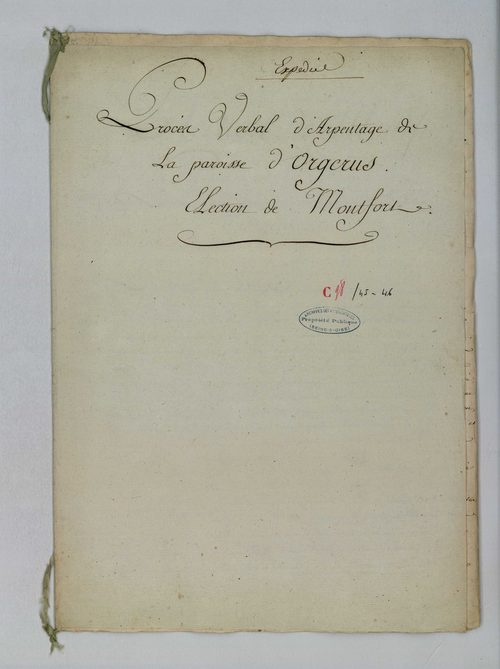 Expedié
Procès Verbal d'Arpentage de
La paroisse d'Orgerus.
Election de Montfort.
C 18 /45-46
Propriété Publique